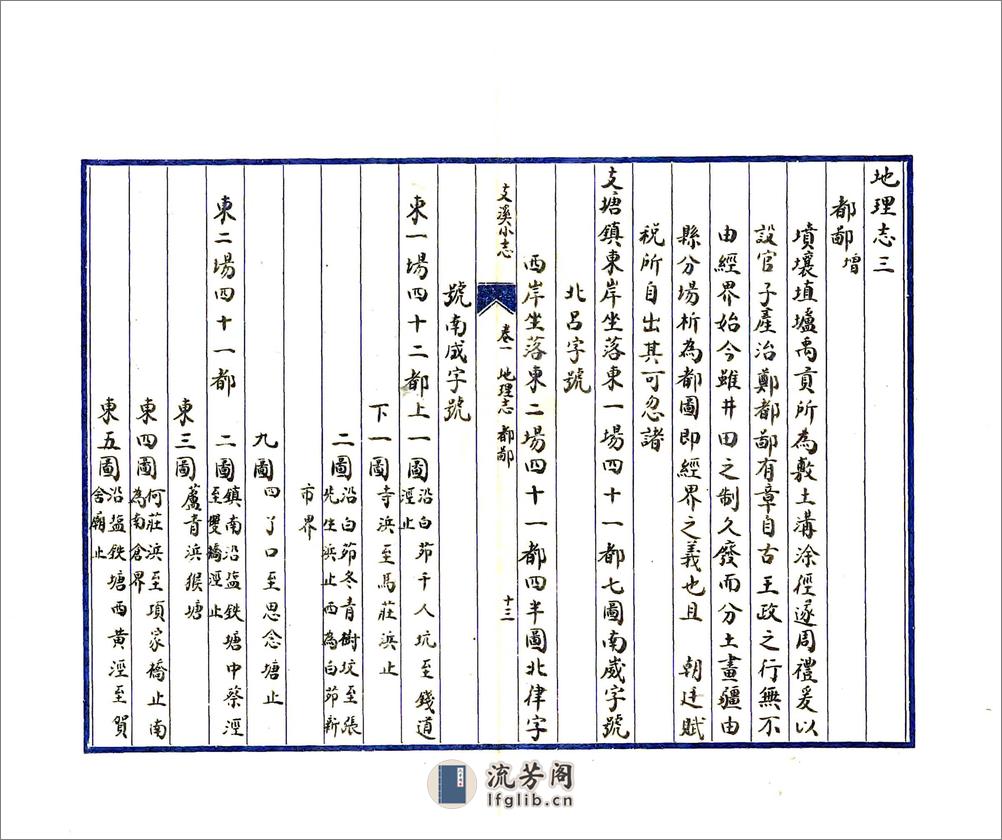 地理志三
都鄙增
墳壤埴壚禹貢所為敷土溝涂徑遂周禮爰以
設官子產治鄭都鄙有章自古王政之行無不
由經界始今雖井田之制久廢而分土畫疆由
縣分場析為都圖即經界之義也且 朝廷賦
税所自出其可忽諸
支塘鎮東岸坐落東一場四十一都七圖南崴字號
北呂字號
西岸坐落東二場四十一都四半圖北律字
支溪小志 卷一 地理志 都鄙 十三
號南成字號
東一場四十二都上一圖沿白茆千人坑至錢道
涇止
下一圖寺浜至馬莊浜止
二圖沿白茆冬青樹坟至張
先生浜止西為白茆新
市界
九圖四了口至思念塘止
東二場四十一都 二圖鎮南沿盐鉄塘中蔡涇
至雙橋涇止
東三圖蘆青浜猴塘
東四圖何莊浜至項家橋止南
為南倉界
東五圖沿盐鉄塘西黃涇至賀
舍廟止
流芳阁
lfglib.cn